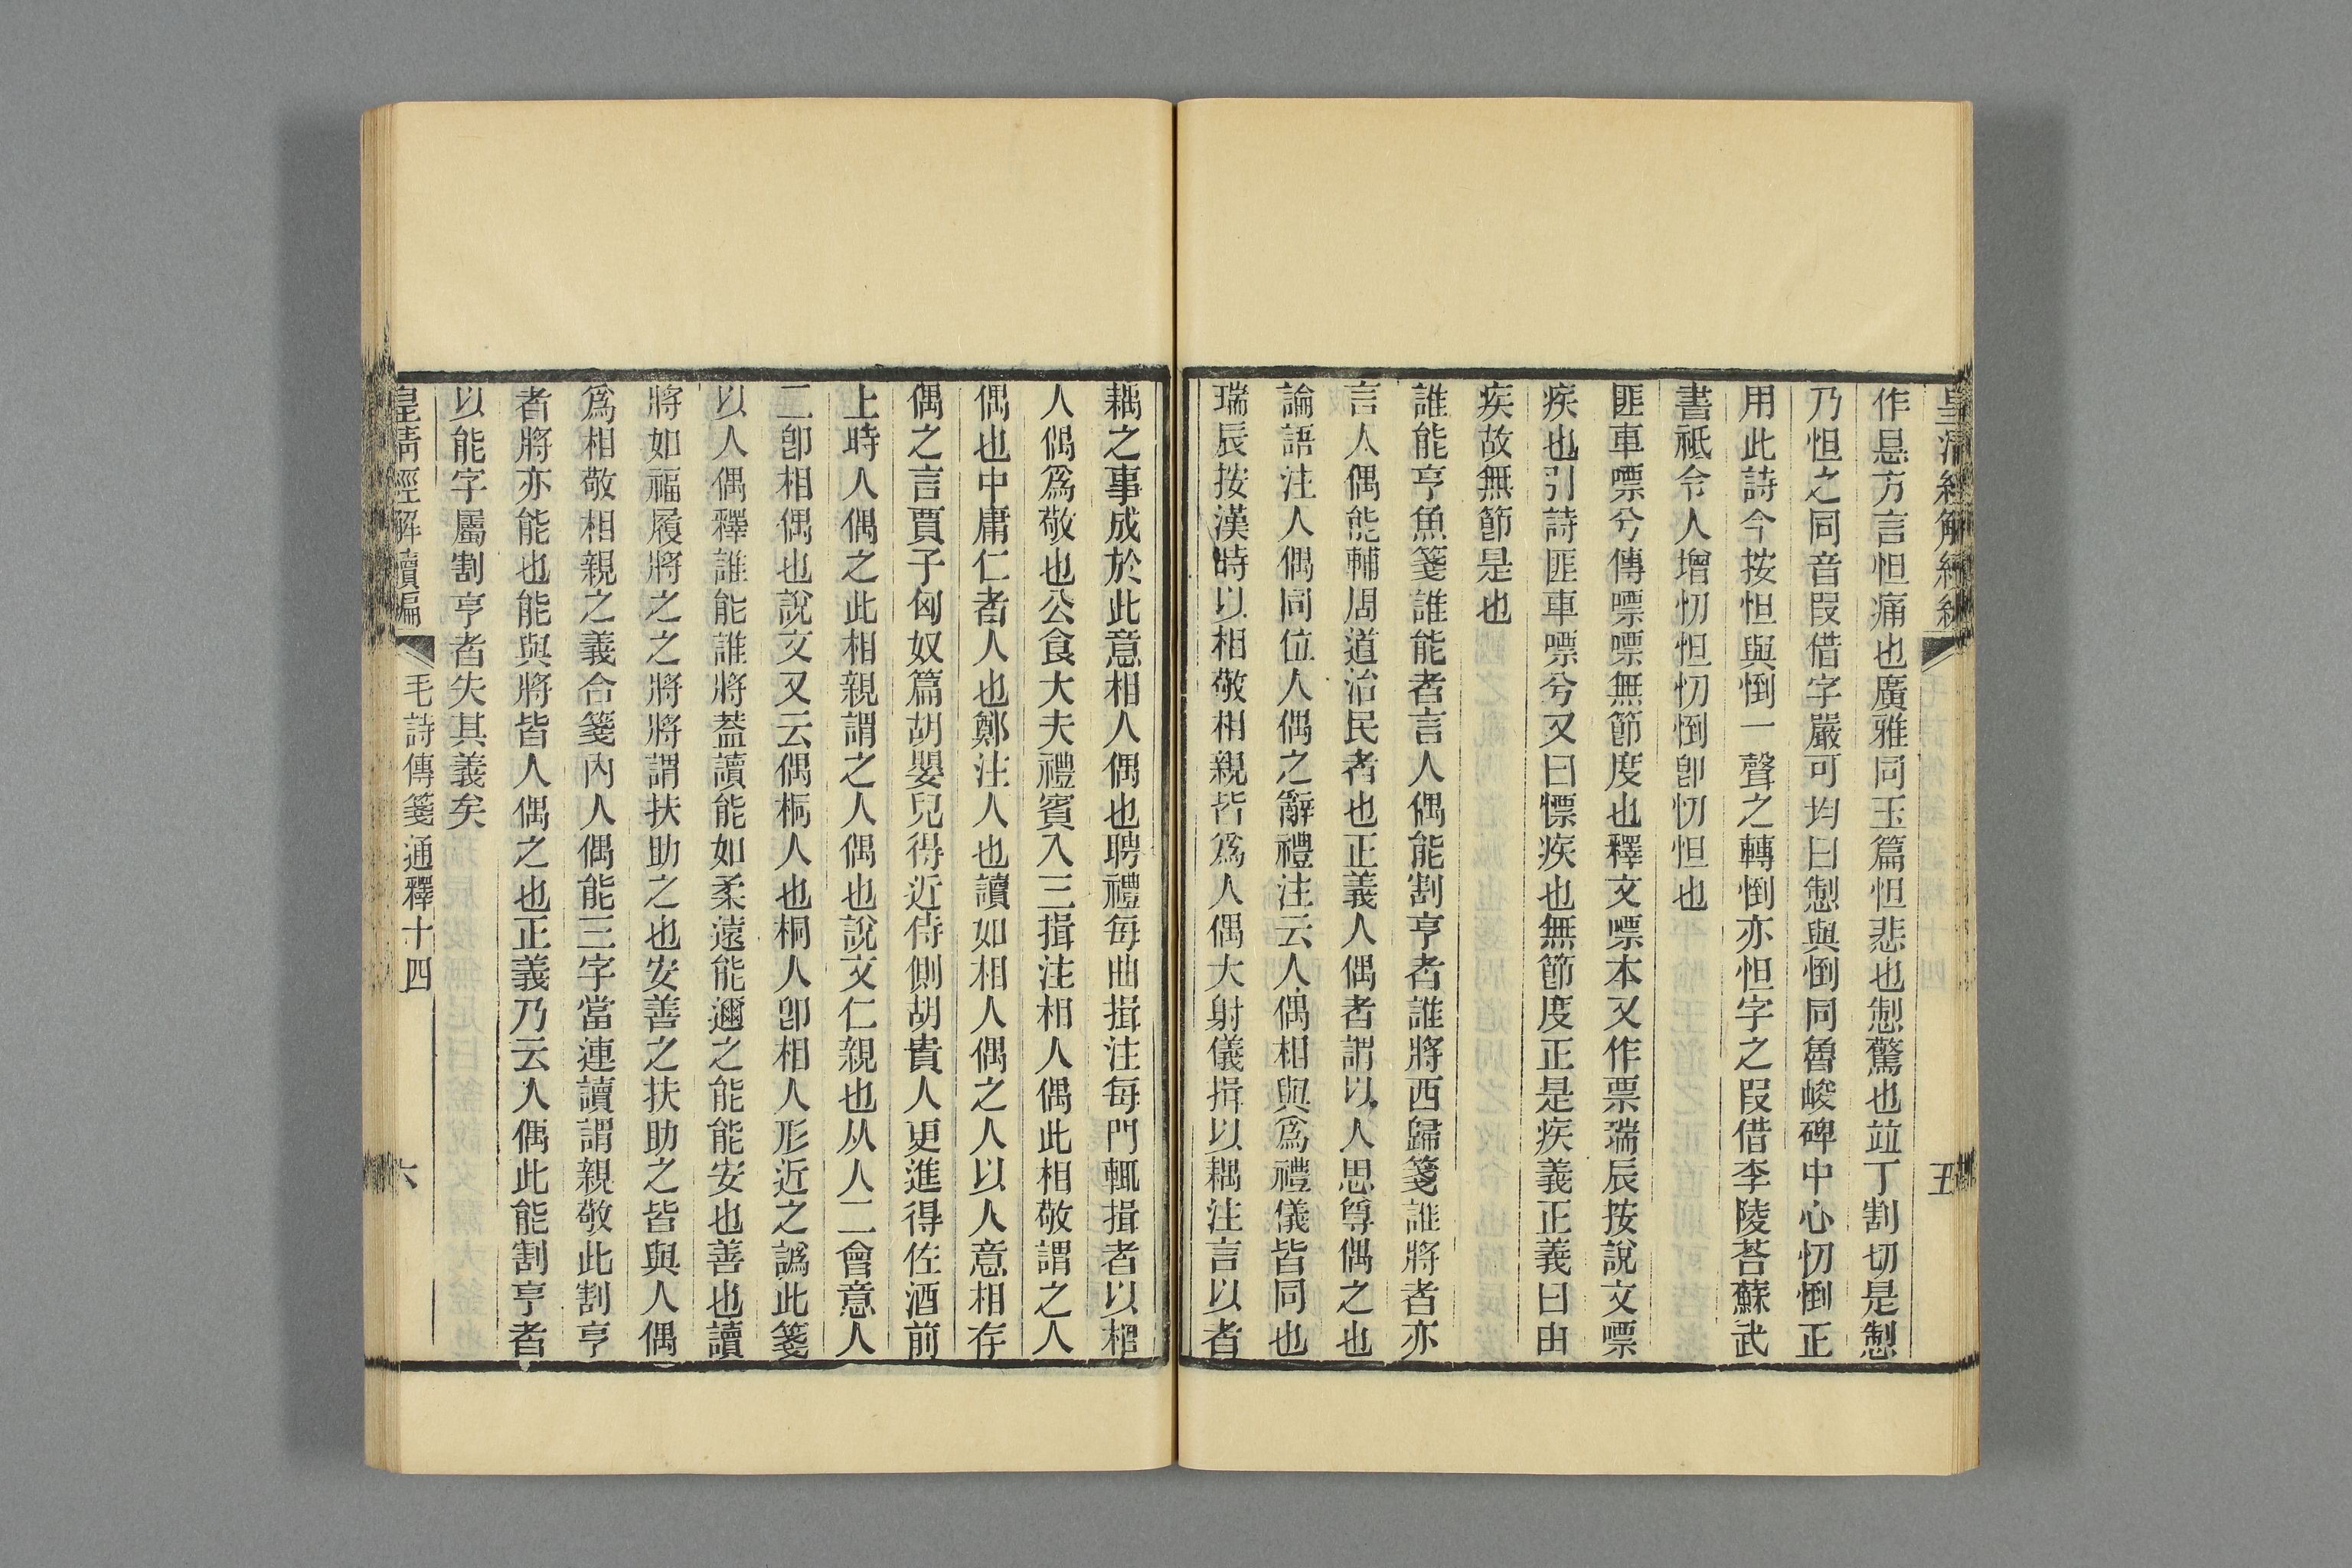 皇清經解續編
五
作㫜方言怛痛也廣雅同玉篇怛悲也㦅驚也竝丁割切是㦅
乃怛之同音叚借字嚴可均曰㦅與㣿同魯峻碑中心忉㣿正
用此詩今按怛與㣿一聲之轉㣿亦怛字之叚借李陵荅蘇武
書祗令人增忉怛忉㣿卽忉怛也
匪車嘌兮傳嘌嘌無節度也釋文嘌本又作票瑞辰按說文嘌
疾也引詩匪車嘌兮又曰慓疾也無節度正是疾義正義曰由
疾故無節是也
誰能亨魚箋誰能者言人偶能割亨者誰將西歸箋誰將者亦
言人偶能輔周道治民者也正義人偶者謂以人思尊偶之也
論語注人偶同位人偶之辭禮注云人偶相與爲禮儀皆同也
瑞辰按漢時以相敬相親皆爲人偶大射儀揖以耦注言以者
耦之事成於此意相人偶也聘禮每曲揖注每門輒揖者以相
人偶爲敬也公食大夫禮賓入三揖注相人偶此相敬謂之人
偶也中庸仁者人也鄭注人也讀如相人偶之人以人意相存
偶之言賈子匈奴篇胡嬰兒得近侍側胡貴人更進得佐酒前
上時人偶之此相親謂之人偶也說文仁親也从人二會意人
二卽相偶也說文又云偶桐人也桐人卽相人形近之譌此箋
以人偶釋誰能誰將葢讀能如柔遠能邇之能能安也善也讀
將如福履將之之將將謂扶助之也安善之扶助之皆與人偶
爲相敬相親之義合箋內人偶能三字當連讀謂親敬此割亨
者將亦能也能與將皆人偶之也正義乃云人偶此能割亨者
以能字屬割亨者失其義矣
皇清經解續編
毛詩傳箋通釋十四
六